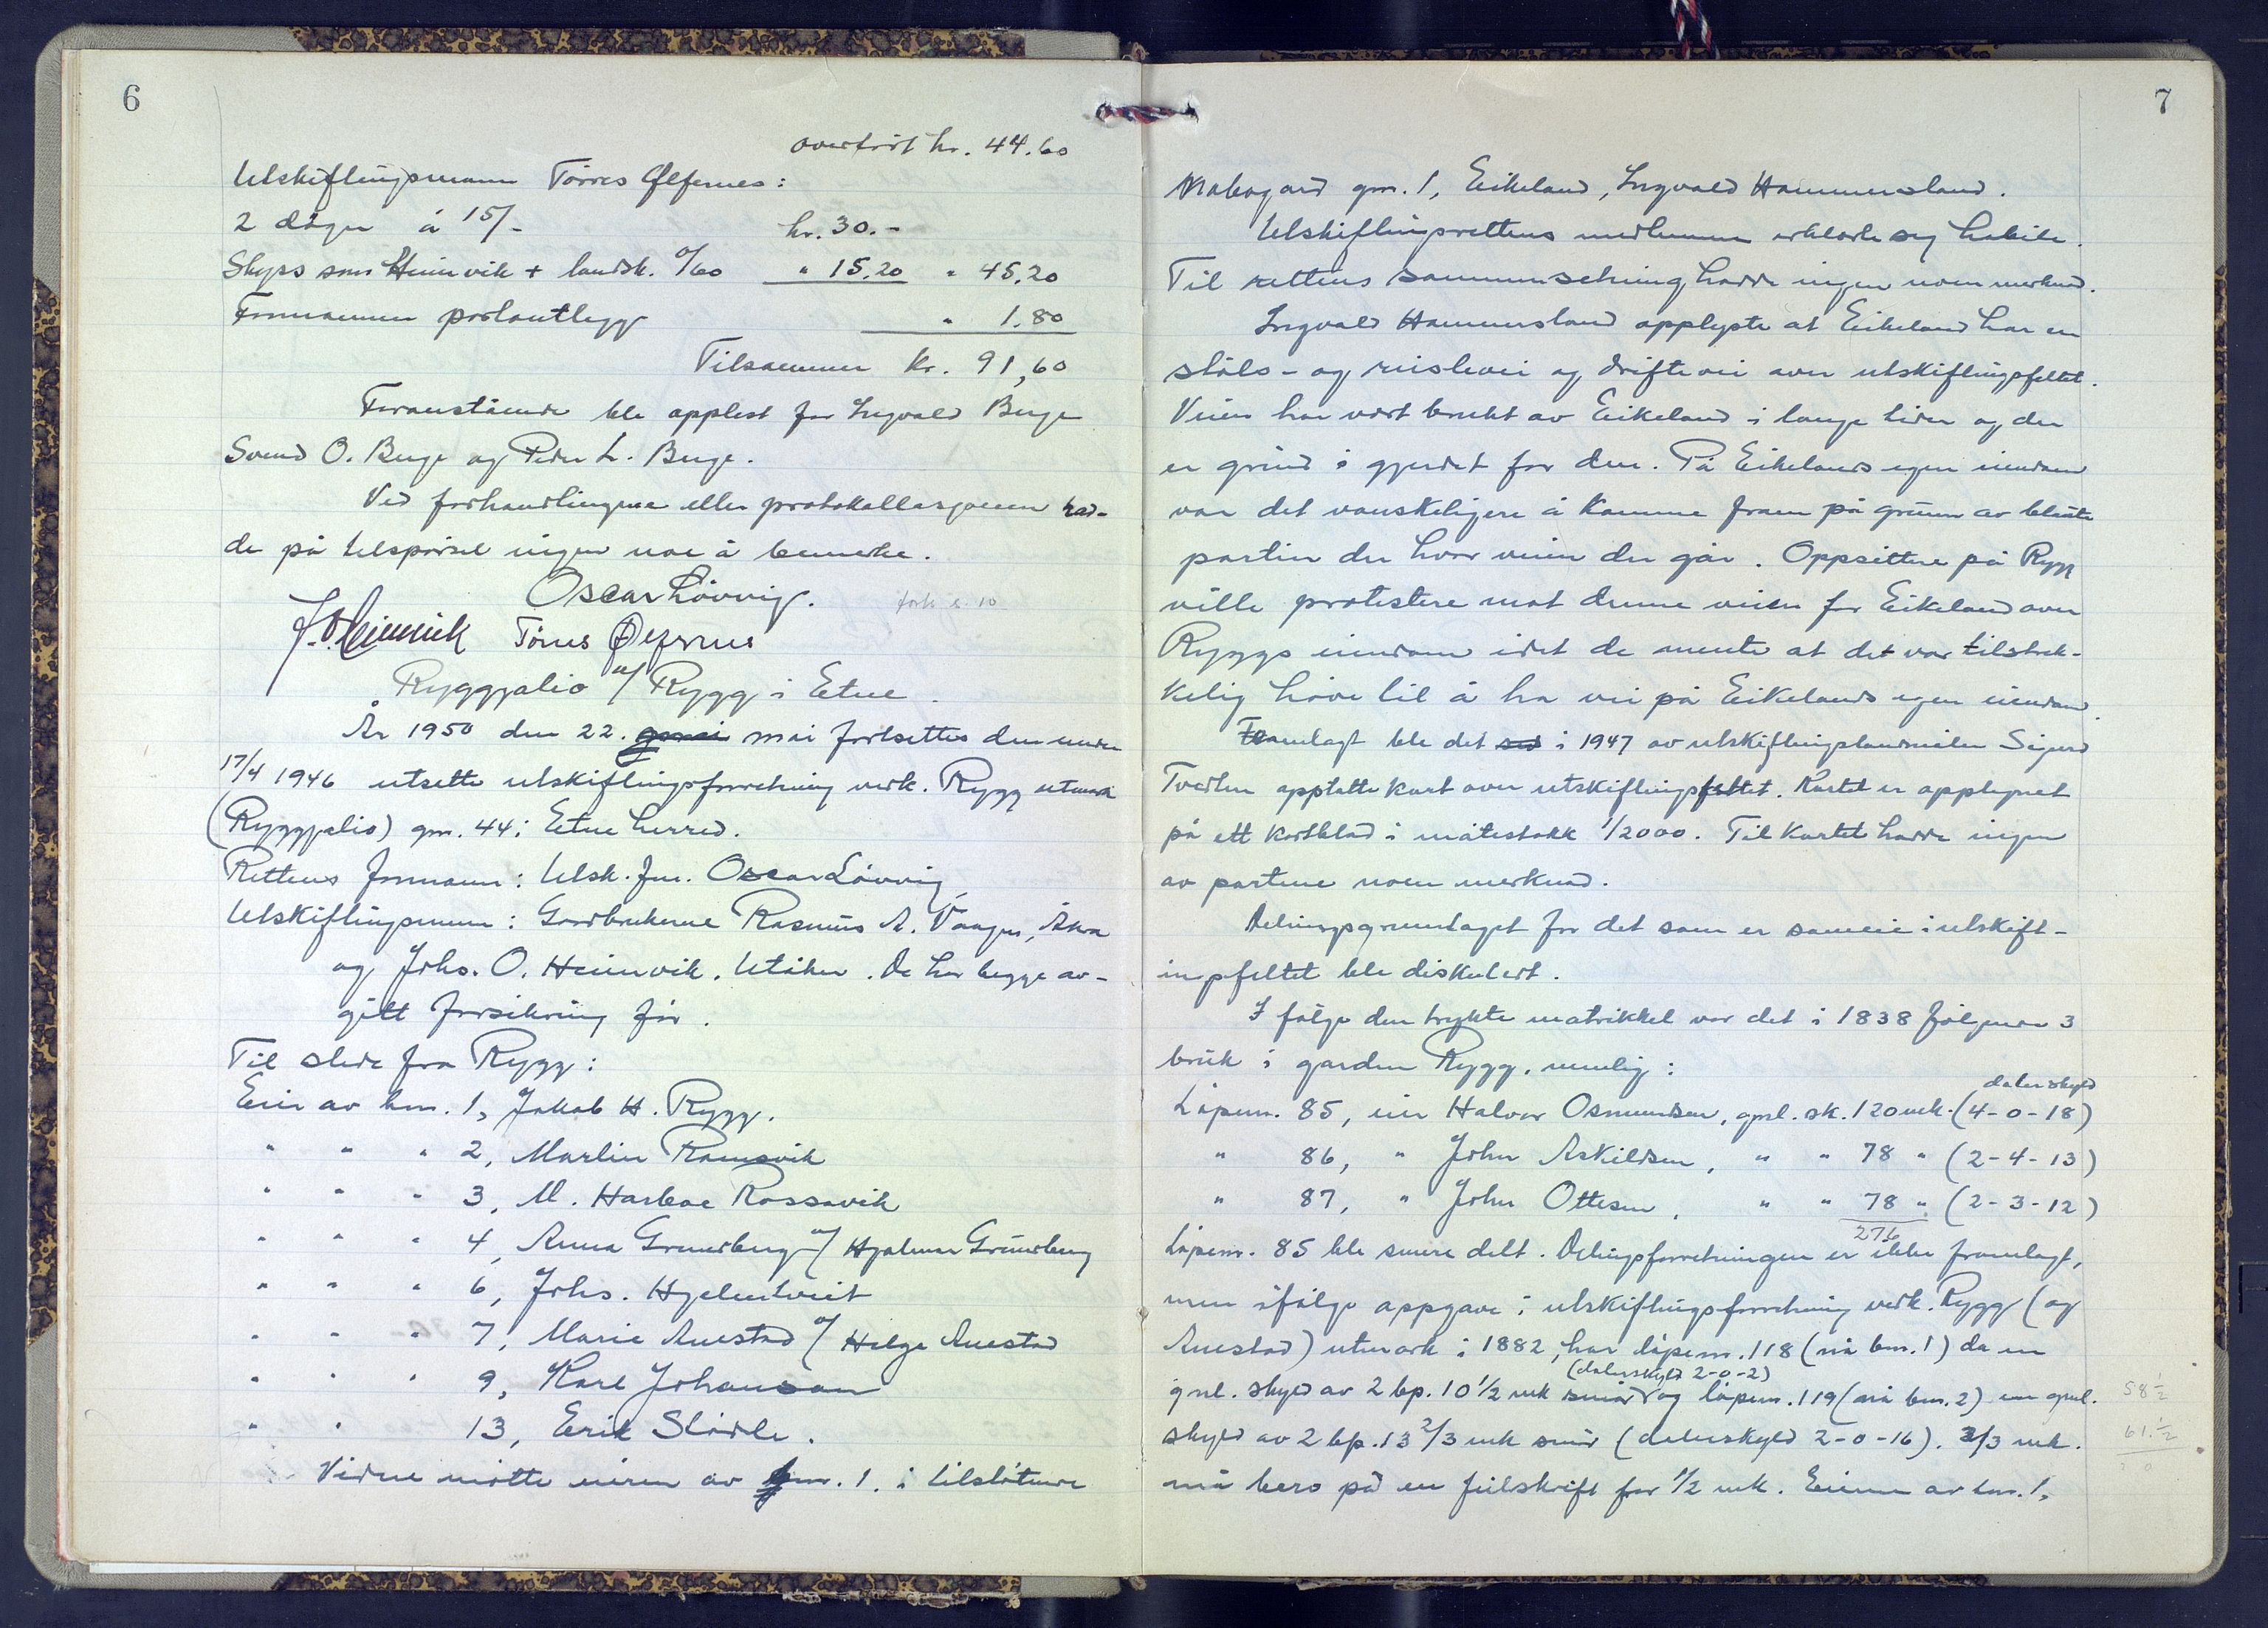 6
overført kr. 44.60
Utskiftingsmann Tørres Ølfernes:
2 dager á 15/- kr. 30.-
Skyss som Heimvik + landsk. 0/60 " 15.20 " 45.20
Formannen portoutlegg " 1.80
Tilsammen kr. 91,60
Foranstående ble opplest for Ingvald Berge
Svend O. Berge og Peder L. Berge.
Ved forhandlingene eller protokollasjonen had-
de på tilspørsel ingen noe å bemerke.
Oscar Løvvig. forts s. 10
J. O. Heimvik Tørres Ølfernes
Ryggjalio u/ Rygg i Etne.
År 1950 den 22. mai fortsettes den under
17/4 1946 utsette utskiftingsforretning vedk. Rygg utmark
(Ryggjalio) gnr. 44 i Etne herred.
Rettens formann: Utsk. fm. Oscar Løvvig,
Utskiftingsmenn: Gardbrukerne Rasmus A. Vaages, Åkra
og Johs. O. Heimvik, Utåker. De har begge av-
gitt forsikring før.
Til stede fra Rygg:
Eier av bnr. 1, Jakob H. Rygg.
" " " 2, Martin Ramsvik
" " " 3, M. Harboe Rossavik
" " " 4, Anna Grunsberg v/ Hjalmar Grunsberg
" " " 6, Johs. Hjelmtveit
" " " 7, Marie Auestad v/ Helge Auestad
" " " 9, Karl Johansson
" " 13, Erik Slørdle.
Videre møtte eieren av bnr. 1. i tilstøtende
7
Nabogard gnr. 1, Eikeland, Ingvald Hammersland.
Utskiftingsrettens medlemmer erklærte seg habile.
Til rettens sammensetning hadde ingen noen merknad.
Ingvald Hammersland opplyste at Eikeland har en
støls- og rislevei og driftevei over utskiftingsfeltet.
Veien har vært brukt av Eikeland i lange tider og der
er grind i gjerdet for den. På Eikelands egen eiendom
var det vanskeligere å komme fram på grunn av bløte
partier der hvor veien der går. Oppsittere på Rygg
ville protestere mot denne veien for Eikeland over
Ryggs eiendom idet de mente at det var tilstrek-
kelig høve til å ha vei på Eikelands egen eiendom.
Framlagt ble det i 1947 av utskiftingslandmåler Sigurd
Tvedten opptatte kart over utskiftingsfeltet. Kartet er opptegnet
på ett kartblad i målestokk 1/2000. Til kartet hadde ingen
av partene noen merknad.
Delingsgrunnlaget for det som er sameie i utskift-
ingsfeltet ble diskutert.
I følge den trykte matrikkel var det i 1838 følgende 3
bruk i garden Rygg, nemlig:
dalerskyld
Løpenr. 85, eier Halvor Osmundsen, gml. sk. 120 mk. (4-0-18)
" 86, " John Askildsen, " " 78 " (2-4-13)
" 87, " John Ottesen, " " 78 " (2-3-12)
276
Løpenr. 85 ble senere delt. Delingsforretningen er ikke framlagt,
men ifølge oppgave i utskiftingsforretning vedk. Rygg (og
Auestad) utmark i 1882, har løpenr. 118 (nå bnr. 1) da en
(dalerskyld 2-0-2)
gml. skyld av 2 bp. 10 1/2 mk smør og løpenr. 119 (nå bnr. 2) en gml. 58 1/2
skyld av 2 bp. 13 2/3 mk smør (dalerskyld 2-0-16). 2/3 mk. 61 1/2
må bero på en feilskrift for 1/2 mk. Eieren av bnr. 1,